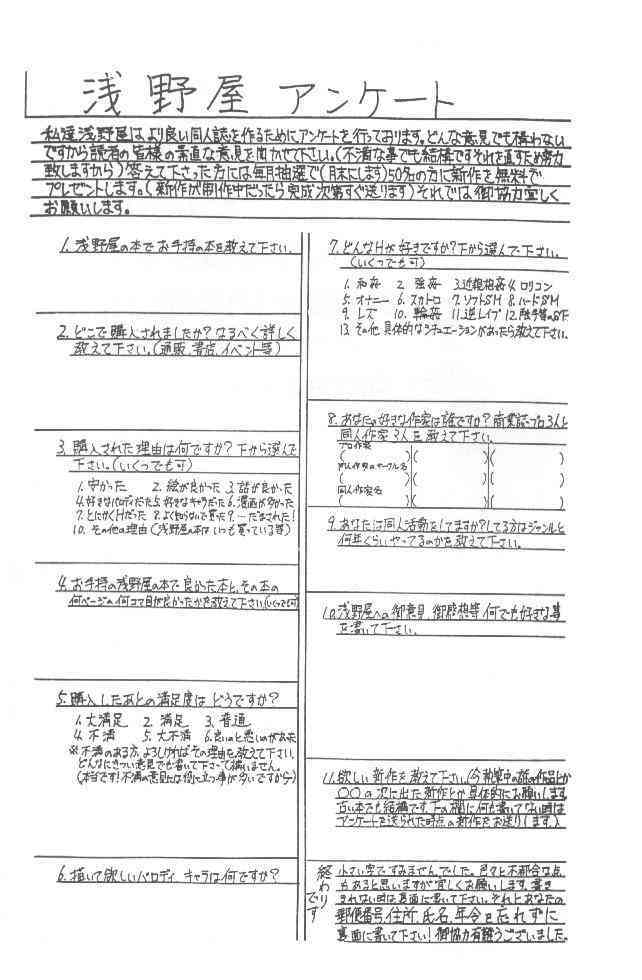 浅野屋 アンケート
私達浅野屋はより良い同人誌を作るためにアンケートを行っております。どんな意見でも構わない
ですから読者の皆様の素直な意見を聞かせて下さい。(不満な事でも結構ですそれを直すため努力
致しますから)答えて下さった方には毎月抽選で(月末にします)50名の方に新作を無料で
プレゼントします。(新作が制作中だったら完成次第すぐ送ります)それでは御協力宜しく
お願いします。
1. 浅野屋の本でお手持の本を教えて下さい.
2. どこで購入されましたか?なるべく詳しく
教えて下さい。(通販、書店、イベント等)
3. 購入された理由は何ですか?下から選んで
下さい。(いくつでも可)
1.安かった 2.絵が良かった 3.話が良かった
4.好きなパロディだった 5.好きなキャラだった 6.漫画が多かった
7.とにかくHだった 8.よく知らないで買った 9.…だまされた!
10. その他の理由(浅野屋の本はいつも買っている等)
4. お手持の浅野屋の本で良かった本と、その本の
何ページの何コマ目が良かったかを教えて下さい(いくつでも可)
5. 購入したあとの満足度はどうですか?
1.大満足 2.満足 3.普通
4.不満 5.大不満 6.良いのと悪いのがあった
※不満のある方、よろしければその理由を教えて下さい。
どんなにきつい意見でも書いて下さって構いません。
(本当です!不満の意見には役に立つ事が多いですから)
6. 描いて欲しいパロディ キャラは何ですか?
7. どんなHが好きですか?下から選んで下さい。
(いくつでも可)
1.和姦 2.強姦 3.近親相姦 4.ロリコン
5.オナニー 6.スカトロ 7.ソフトSM 8.ハードSM
9.レズ 10.輪姦 11.逆レイプ 12.
13.その他 具体的なシチュエーションがあったら教えて下さい.
8. あなたの好きな作家は誰ですか?商業誌・プロ3人と
同人作家3人を教えて下さい.
プロ作家
( )( )( )
同人作家のサークル名
( )( )( )
同人作家名
( )( )( )
9. あなたは同人活動をしてますか?してる方はジャンルと
何年くらいやってるのかを教えて下さい。
10.浅野屋への御意見、御感想等 何でも好きな事
を書いて下さい.
11.欲しい新作を教えて下さい.(今執筆中の の作品とか
○○の次に出た新作とか具体的にお願いします
古い本でも結構です.下の欄に何も書いてない時は
アンケートを送られた時点の新作をお送りします.)
終わりです
小さい字ですみませんでした。色々と不都合な点
もあると思いますが宜しくお願いします.書き
きれない時は裏面に書いて下さい。それとあなたの
郵便番号、住所、氏名、年令を忘れずに
裏面に書いて下さい!御協力有難うございました.